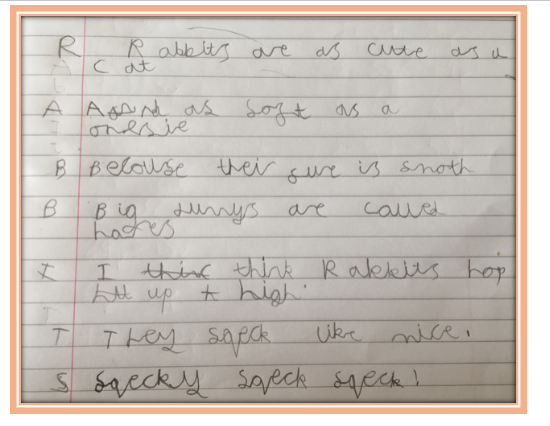 R Rabbits are as cute as a
cat
A Assnd as soft as a
onesie
B Belouse their fure is smoth
B Big bunnys are called
hares
I I think think Rabbits hop
up high.
T They sqeck like mice.
S Sqecky sqeck sqeck!